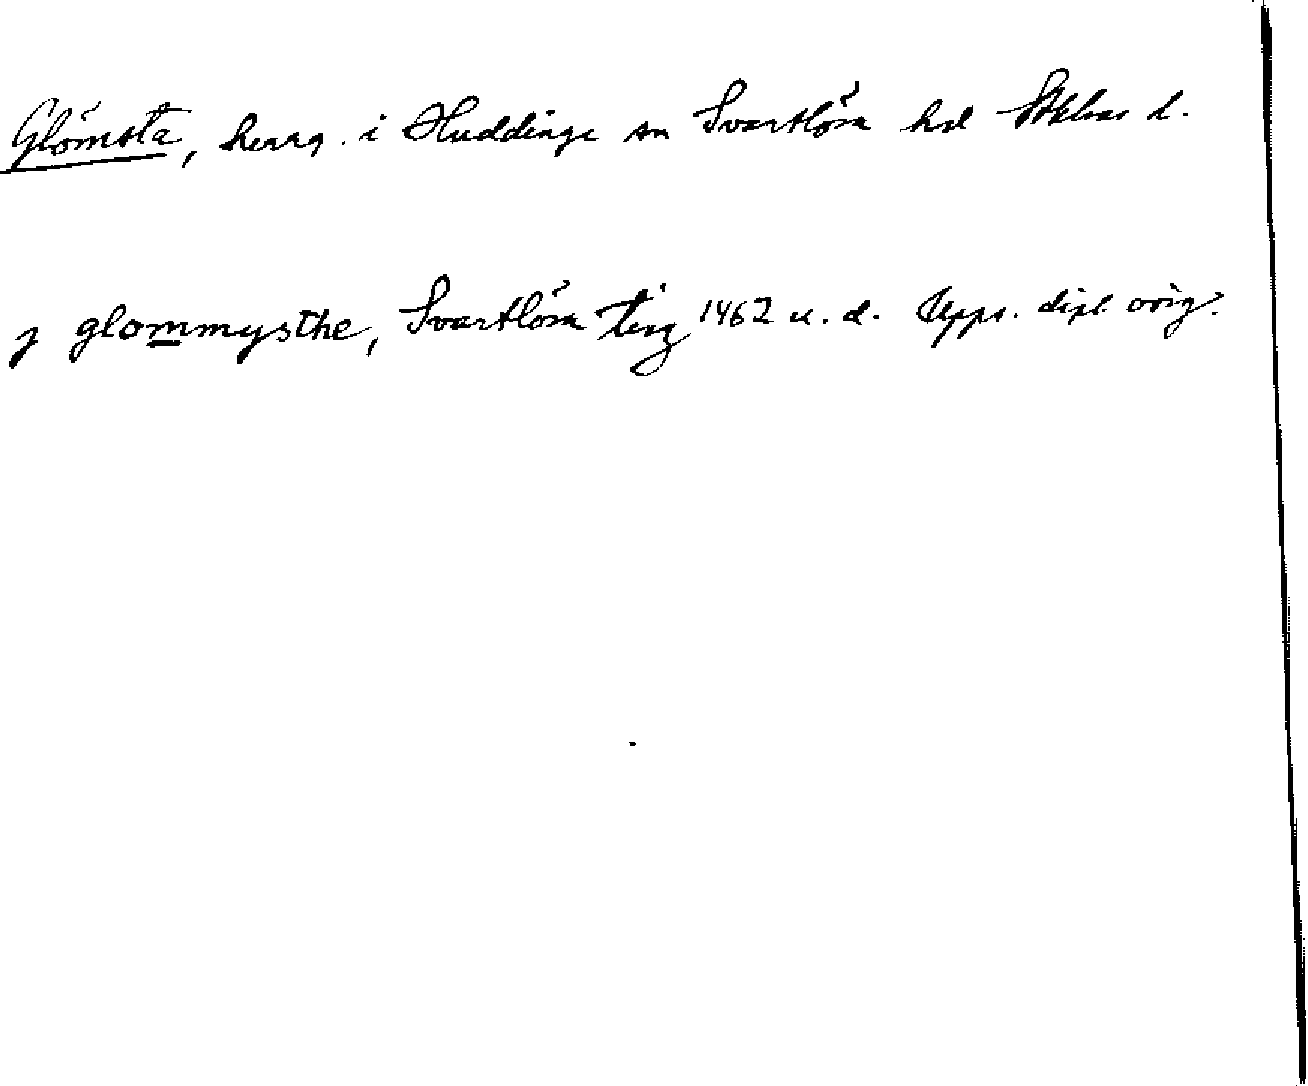 Glömsta, herrg. i Huddinge sn Svartlösa hd Sthlms l.
j glommysthe, Svartlösa ting 1462 u. d. Upps. dipl. orig.